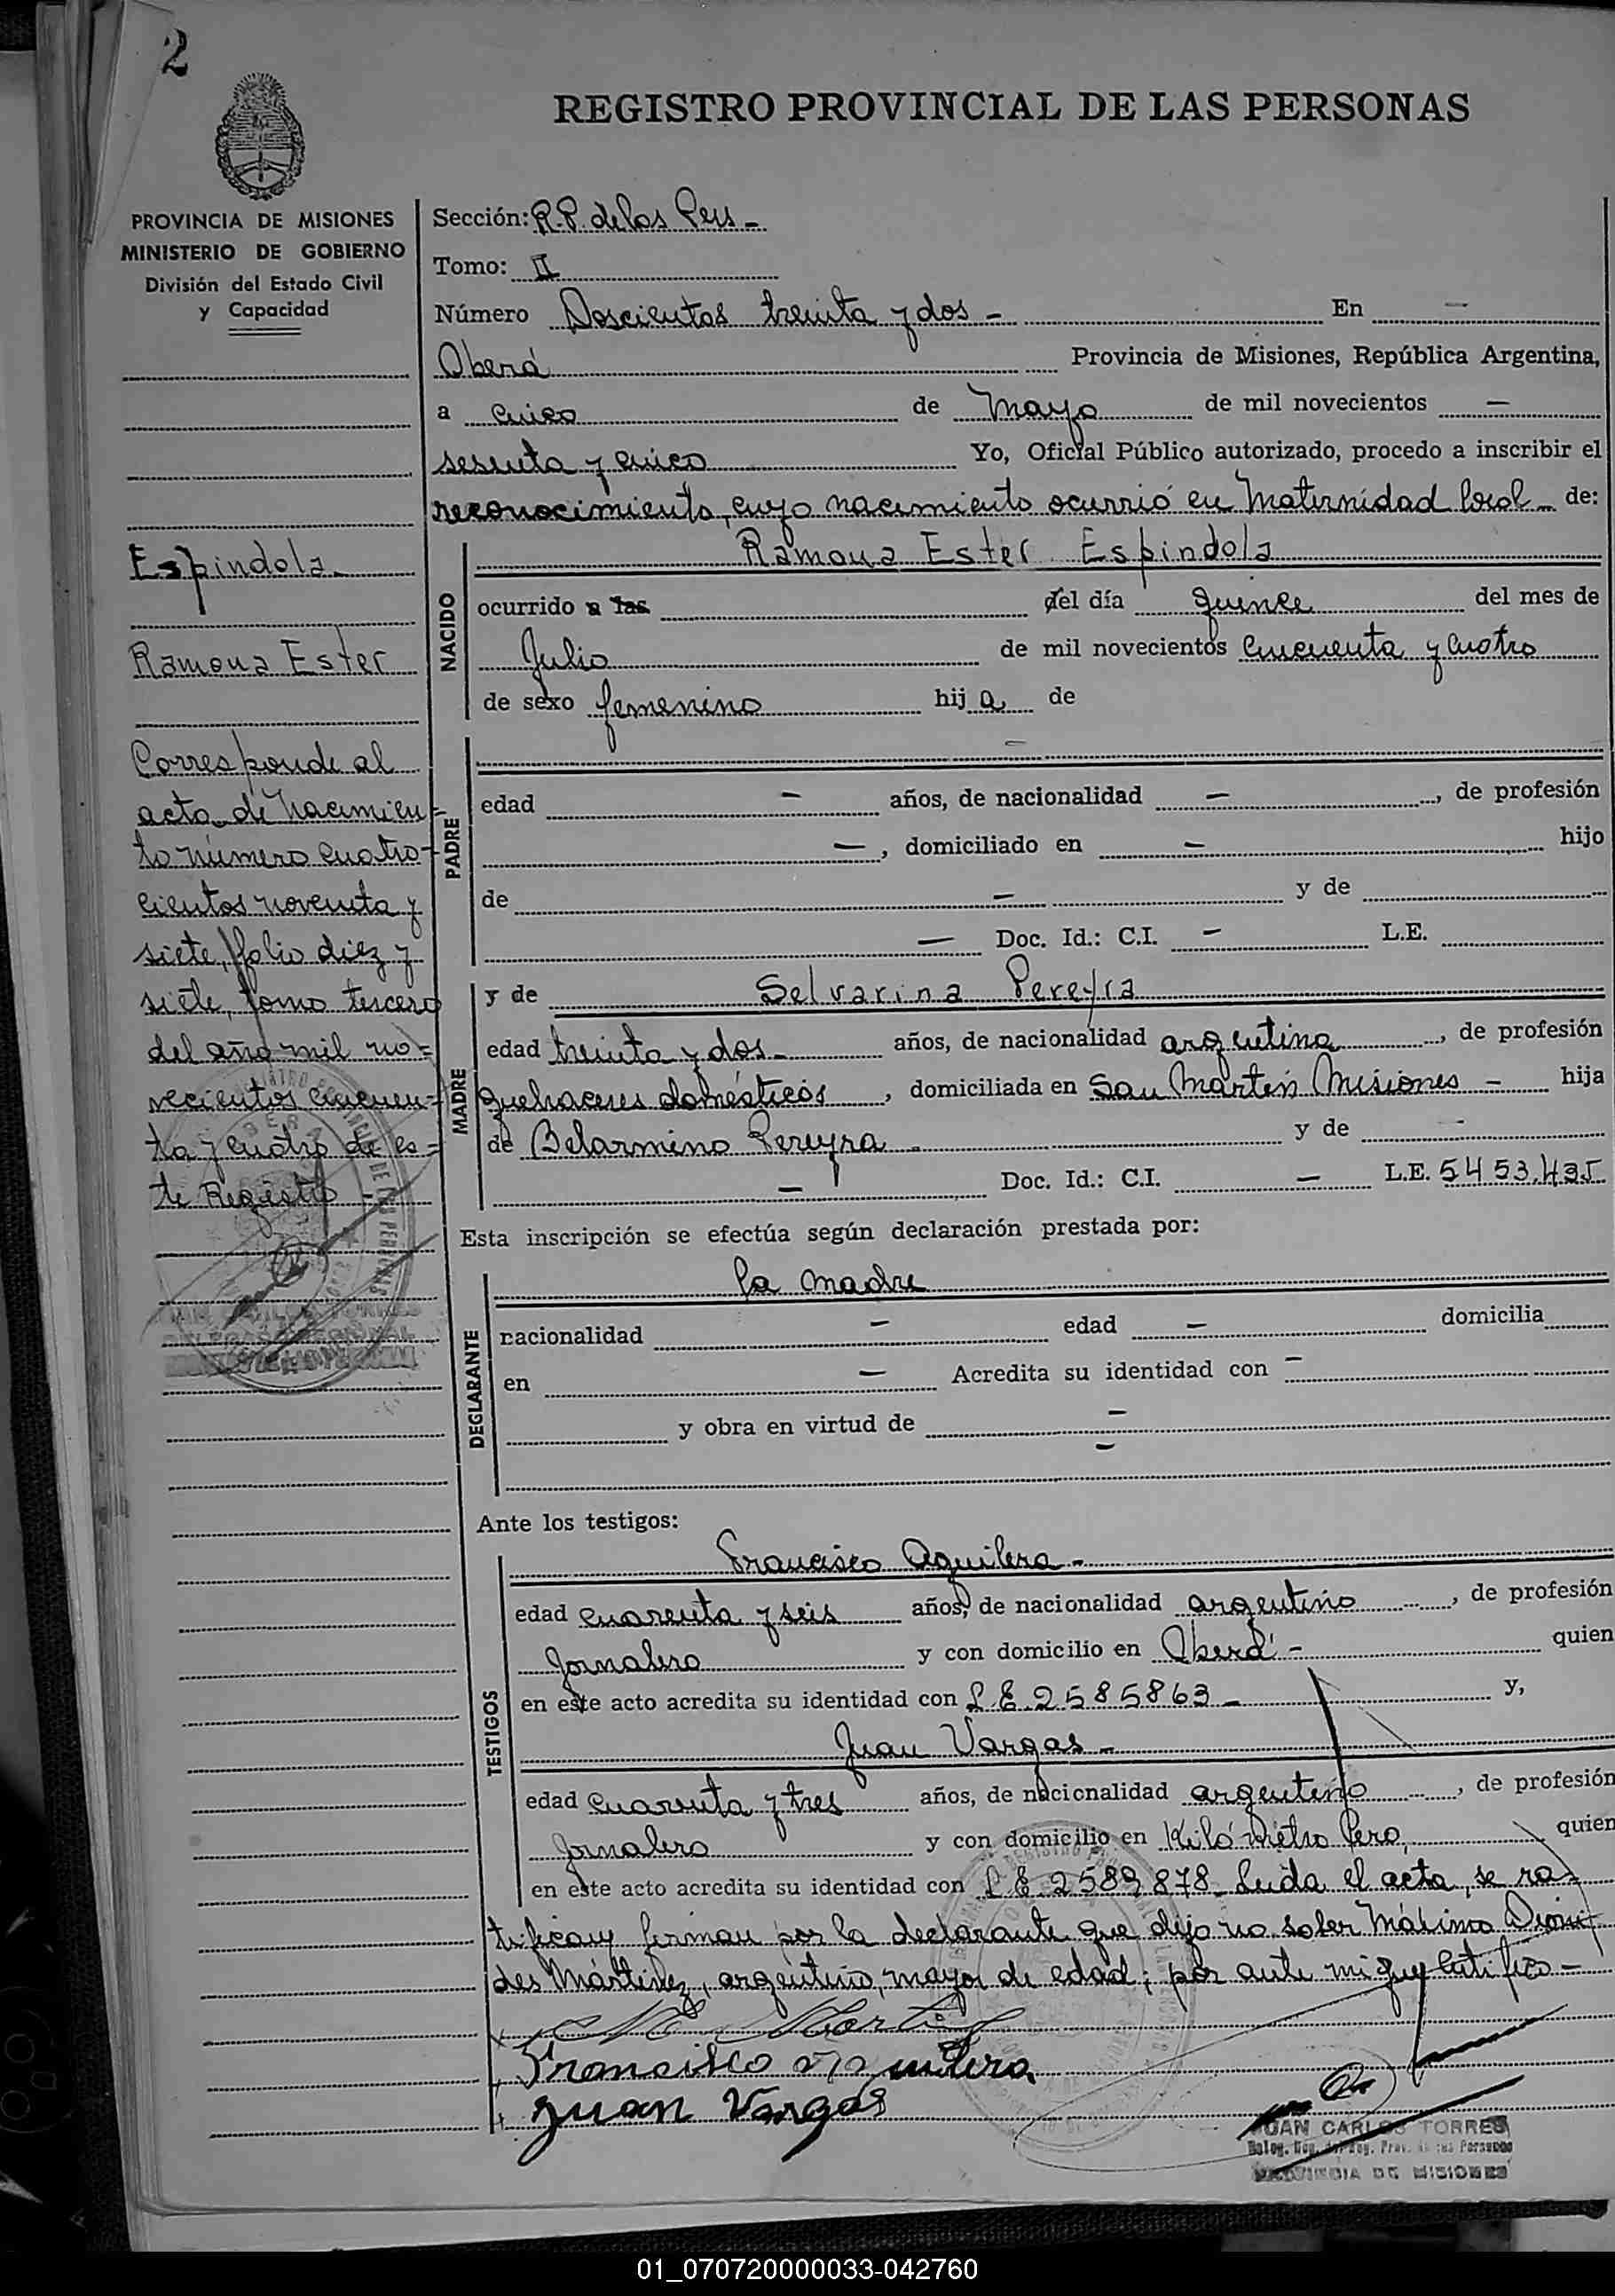 2
REGISTRO PROVINCIAL DE LAS PERSONAS
PROVINCIA DE MISIONES
MINISTERIO DE GOBIERNO
División del Estado Civil
y Capacidad
Espindola
Ramona Ester
Corresponde al
acta de nacimien-
to número cuatro-
cientos noventa y
siete, folio diez y
siete, tomo tercero
del año mil no-
vecientos cincuen-
ta y cuatro de es-
te Registro -
Sección: R.P. de las Pers -
Tomo: II
Número Doscientos treinta y dos - En -
Oberá Provincia de Misiones, República Argentina,
a cinco de Mayo de mil novecientos -
sesenta y cinco Yo, Oficial Público autorizado, procedo a inscribir el
reconocimiento, cuyo nacimiento ocurrió en Maternidad local - de:
NACIDO
Ramona Ester Espindola
ocurrido a las del día quince del mes de
Julio de mil novecientos cincuenta y cuatro
de sexo femenino hija de
PADRE
-
edad - años, de nacionalidad - , de profesión
- , domiciliado en - hijo
de - y de
- Doc. Id.: C.I. - L.E.
MADRE
y de Selvarina Pereyra
edad treinta y dos - años, de nacionalidad argentina , de profesión
quehaceres domésticos , domiciliada en San Martín Misiones - hija
de Belarmino Pereyra - y de -
- Doc. Id.: C.I. - L.E. 5453.435
Esta inscripción se efectúa según declaración prestada por:
DECLARANTE
la madre
nacionalidad - edad - domicilia
en - Acredita su identidad con -
y obra en virtud de -
-
Ante los testigos:
TESTIGOS
Francisco Aguilera -
edad cuarenta y seis años, de nacionalidad argentino , de profesión
Jornalero y con domicilio en Oberá - quien
en este acto acredita su identidad con L E 2585863 - y,
Juan Vargas -
edad cuarenta y tres años, de nacionalidad argentino , de profesión
Jornalero y con domicilio en Kilómetro Cero, quien
en este acto acredita su identidad con L E 2589878 - Leida el acta, se ra-
tifican firman por la declarante que dijo no saber Máximo
Mártinez, argentino, mayor de edad; por ante mi que certifico -
Francisco Aguilera
Juan Vargas
JUAN CARLOS TORRES
PROVINCIA DE MISIONES
01_070720000033-042760